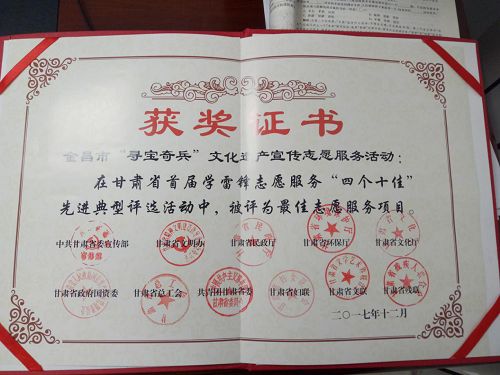 获奖证书
金昌市“寻宝奇兵”文化遗产宣传志愿服务活动:
在甘肃省首届学雷锋志愿服务“四个十佳”
先进典型评选活动中,被评为最佳志愿服务项目。
中共甘肃省委宣传部 甘肃省文明办 甘肃省民政厅 甘肃省环保厅 甘肃省文化厅
甘肃省政府国资委 甘肃省总工会 共青团甘肃省委 甘肃省妇联 甘肃省文联 甘肃省残联
二〇一七年十二月